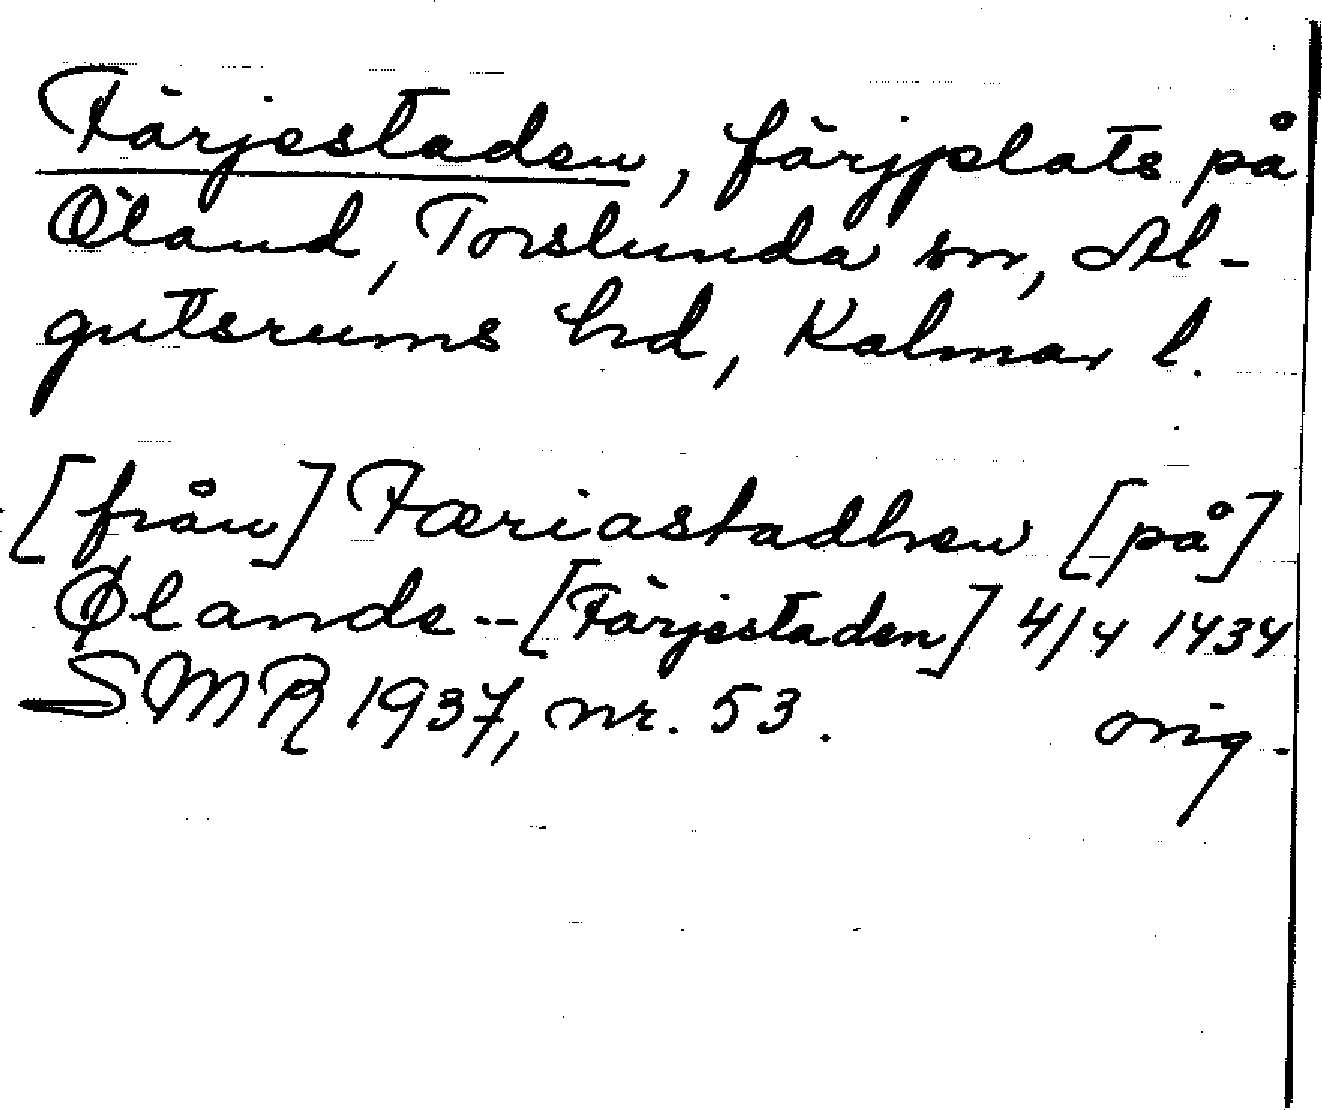 Färjestaden, färjplats på
Öland, Torslunda sn, Al-
gutsrums hd, Kalmar l.
[från] Færiastadhen [på]
Ølande -- [Färjestaden] 4/4 1434
SMR 1937, nr. 53. orig.